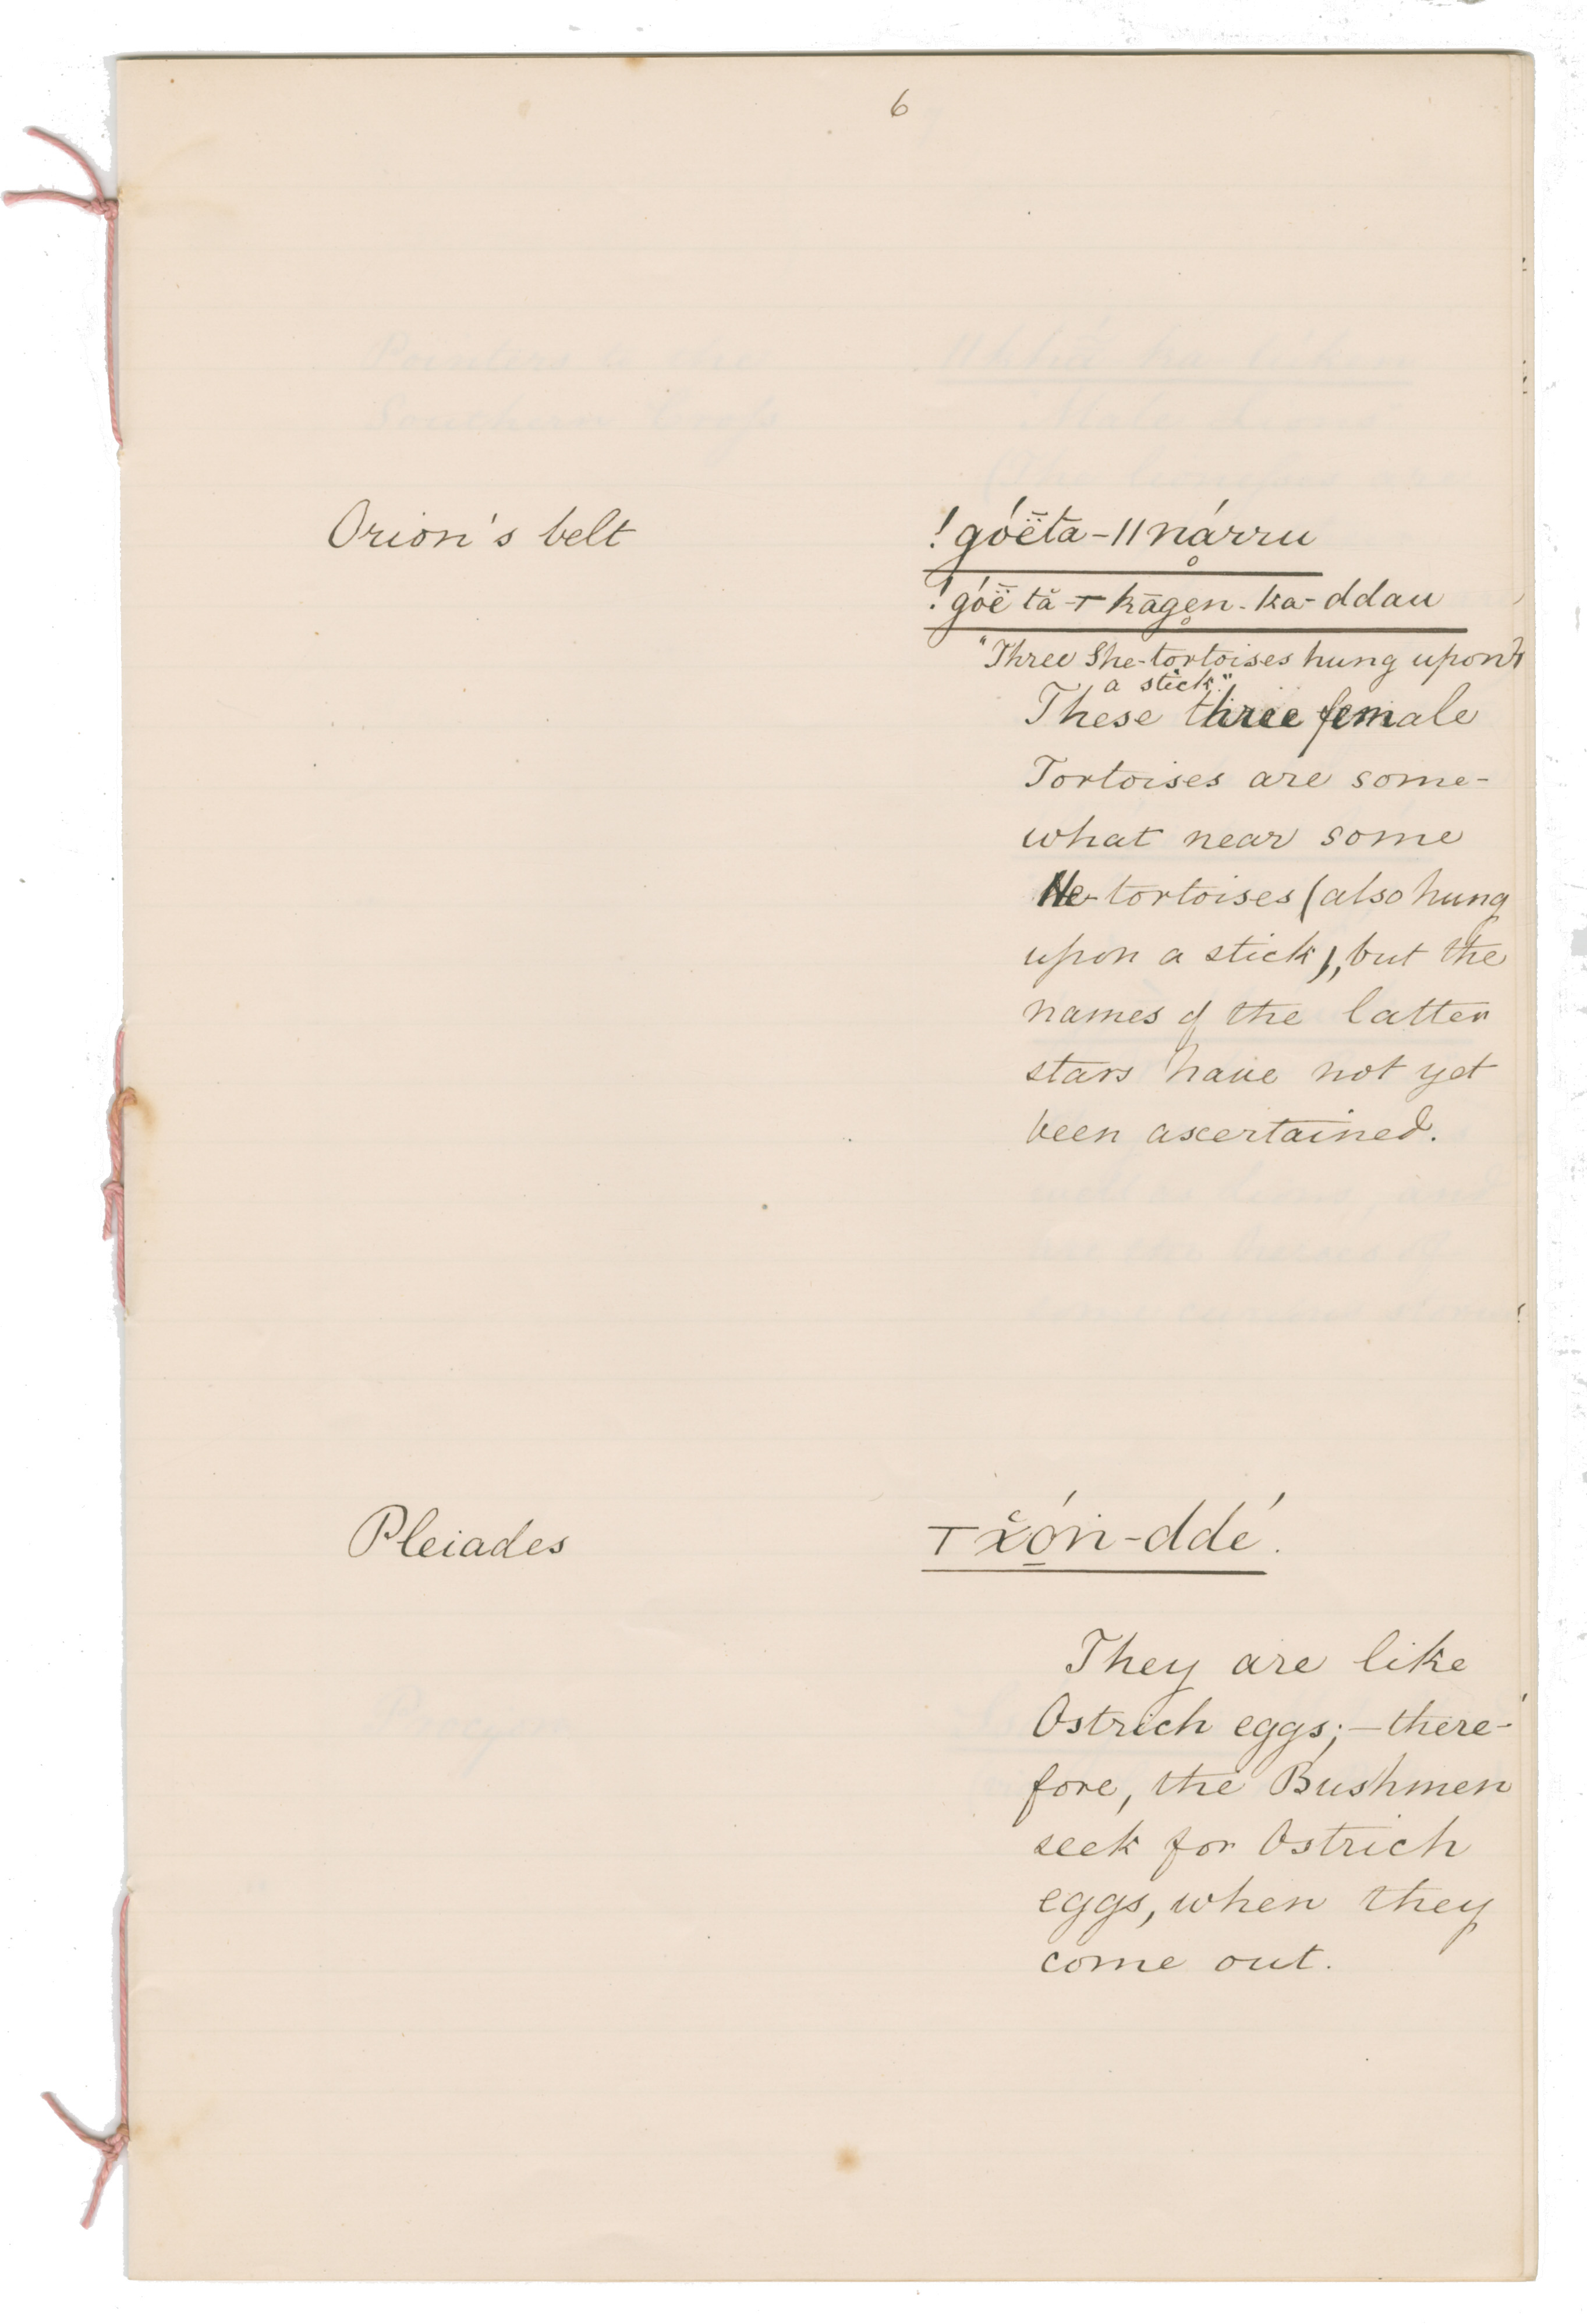 6
Orion's belt
!góë̅tā-||nạ̊́rru
!góë̅ tă-⊤ kāge̥n-ka-ddau
"Three She-tortoises hung upon
a stick."
These three female
Tortoises are some-
what near some
He-tortoises (also hung
upon a stick), but the
names of the latter
stars have not yet
been ascertained.
Pleiades
⊤ x̌ó̱ṅ-ddé.
They are like
Ostrich eggs; — there-
fore, the Bushmen
seek for Ostrich
eggs, when they
come out.